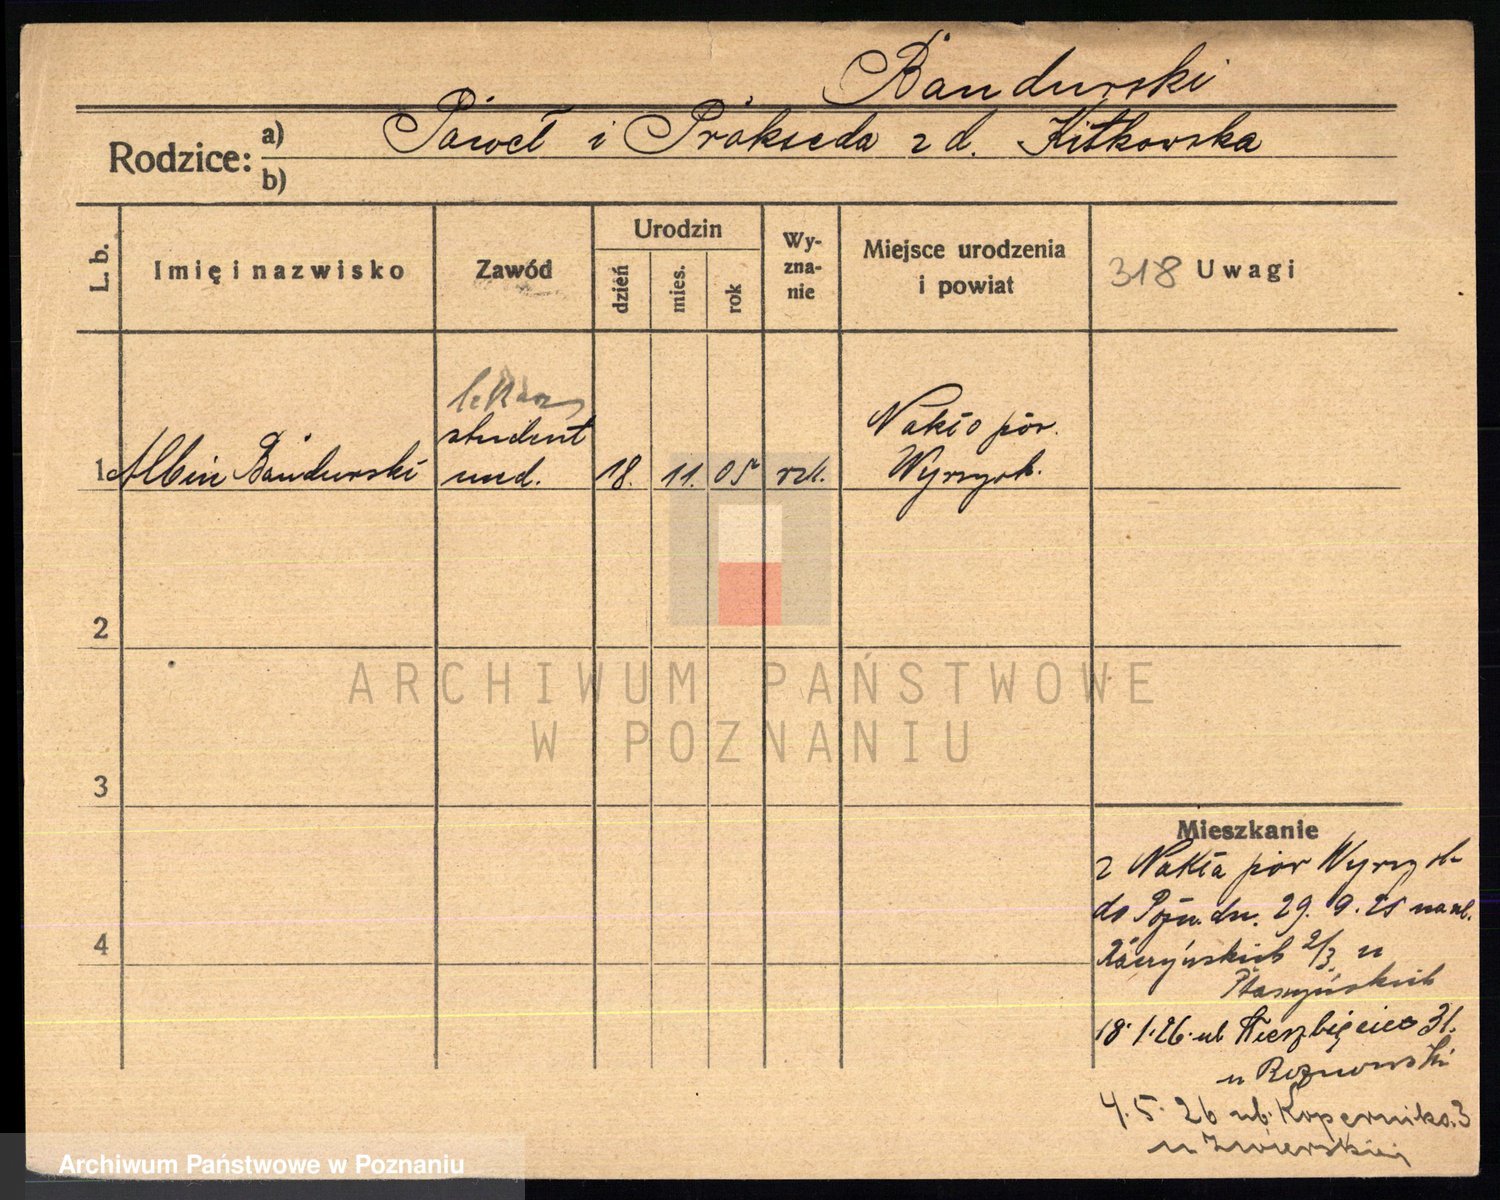 Bandurski
Rodzice: a) Paweł i Prakseda z d. Kitkowska
b)
L. b.
Imię i nazwisko
Zawód
Urodzin
dzień
mies.
rok
Wy-
zna-
nie
Miejsce urodzenia
i powiat
318 Uwagi
lekarz
student
med.
1 Albin Bandurski
18. 11. 05 rzk.
Nakło pow.
Wyrzysk.
2
3
4
Mieszkanie
z Nakła pow Wyrzysk
do Pozn. dn. 29. 9. 25 na ul.
Raczyńskich 2/3 u
Ptaszyńskich
18. 1. 26. ul 31.
u Roznowski
4. 5. 26 ul. Kopernika. 3
u Zwierskiej
ARCHIWUM PAŃSTWOWE
W POZNANIU
Archiwum Państwowe w Poznaniu